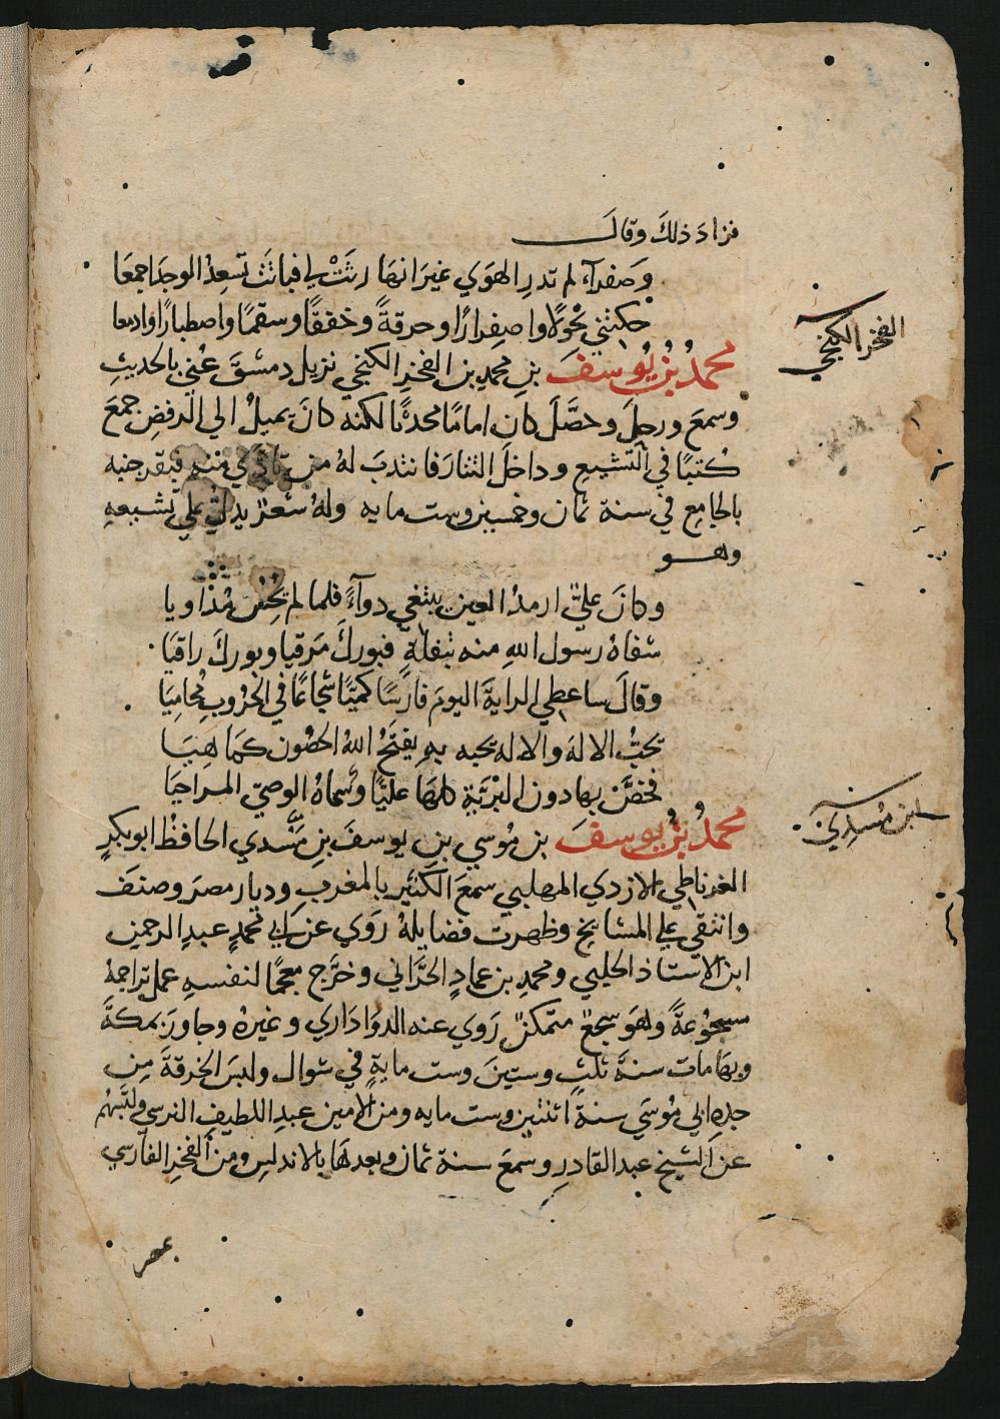 فزاد ذلك وقال
وصفرآء لم تدر الهوي غير انها رثت لي فباتت تسعد الوجد اجمعا
حكتني نحولًا واصفرارًا وحرقةً وخفقًا وسقمًا واصطبارًا وادمعا
الفخر الكنجي
محمدُ بنُ يُوسفَ بنِ محمدِ بن الفخرِ الكنجي نزيل دمشقَ عُني بالحديثِ
وسمعَ ورحلَ وحصَّلَ كان امامًا محدثًا لكنه كانَ يميلُ الي الرفضِ جمعَ
كُتبًا في التشيعِ وداخلَ التتارَ فانتدبَ لهُ من تأذي منه فبقر جنبه
بالجامعِ في سنة ثمان وخمسين وست مايه ولهُ شعرٌ يدلُّ علي تشيعهِ
وهو
وكانَ عليٌّ ارمدُ العين يبتغي دوآءً فلما لم يحُسّ مُداويا
شفاهُ رسول اللهِ منه بتفلةٍ فبوركَ مَرقيا وبوركَ راقيَا
وقالَ ساعطي الرايةَ اليومَ فارسًا كميًّا شجاعًا في الحُروبِ مُحامِيَا
يحبُّ الالهَ والاله يحبه به يفتحُ اللهُ الحصُون كمَا هِيَا
فخصَّ بها دون البريّةِ كلهَا عليًّا وسماهُ الوصيّ المواخيَا
ابن مسدي
محمدُ بنُ يوسفَ بن مُوسي بن يوسفَ بنِ مَسْدي الحافظُ ابو بكرٍ
الغرناطي الازدي المهلبي سمعَ الكثير بالمغربِ وديار مصرَ وصنفَ
وانتقي علي المشايخِ وظهرت فضايلهُ رَوي عن ابي محمدٍ عبدِ الرحمن
ابن الاستاذ الحلبي ومحمدِ بن عمادٍ الحرَّاني وخرَّج معجمًا لنفسهِ عمل تراجمهُ
مسجُوعةً ولهوَ سجعٌ متمكنٌ رَوي عنه الدوَادَاري وغيرهُ وجاورَ بمكةَ
وبهَا مات سنةَ ثلثٍ وستينَ وست مايةٍ في شوال ولبسَ الخرقةَ مِن
جدهِ ابي مُوسَي سنةَ اثنتين وست مايه ومن الامين عبدِ اللطيفِ النرسي ولبسهُم
عن الشيخ عبد القادرِ وسمعَ سنة ثمان وبعدهَا بالاندلسِ ومن الفخرِ الفارسي
بمصر